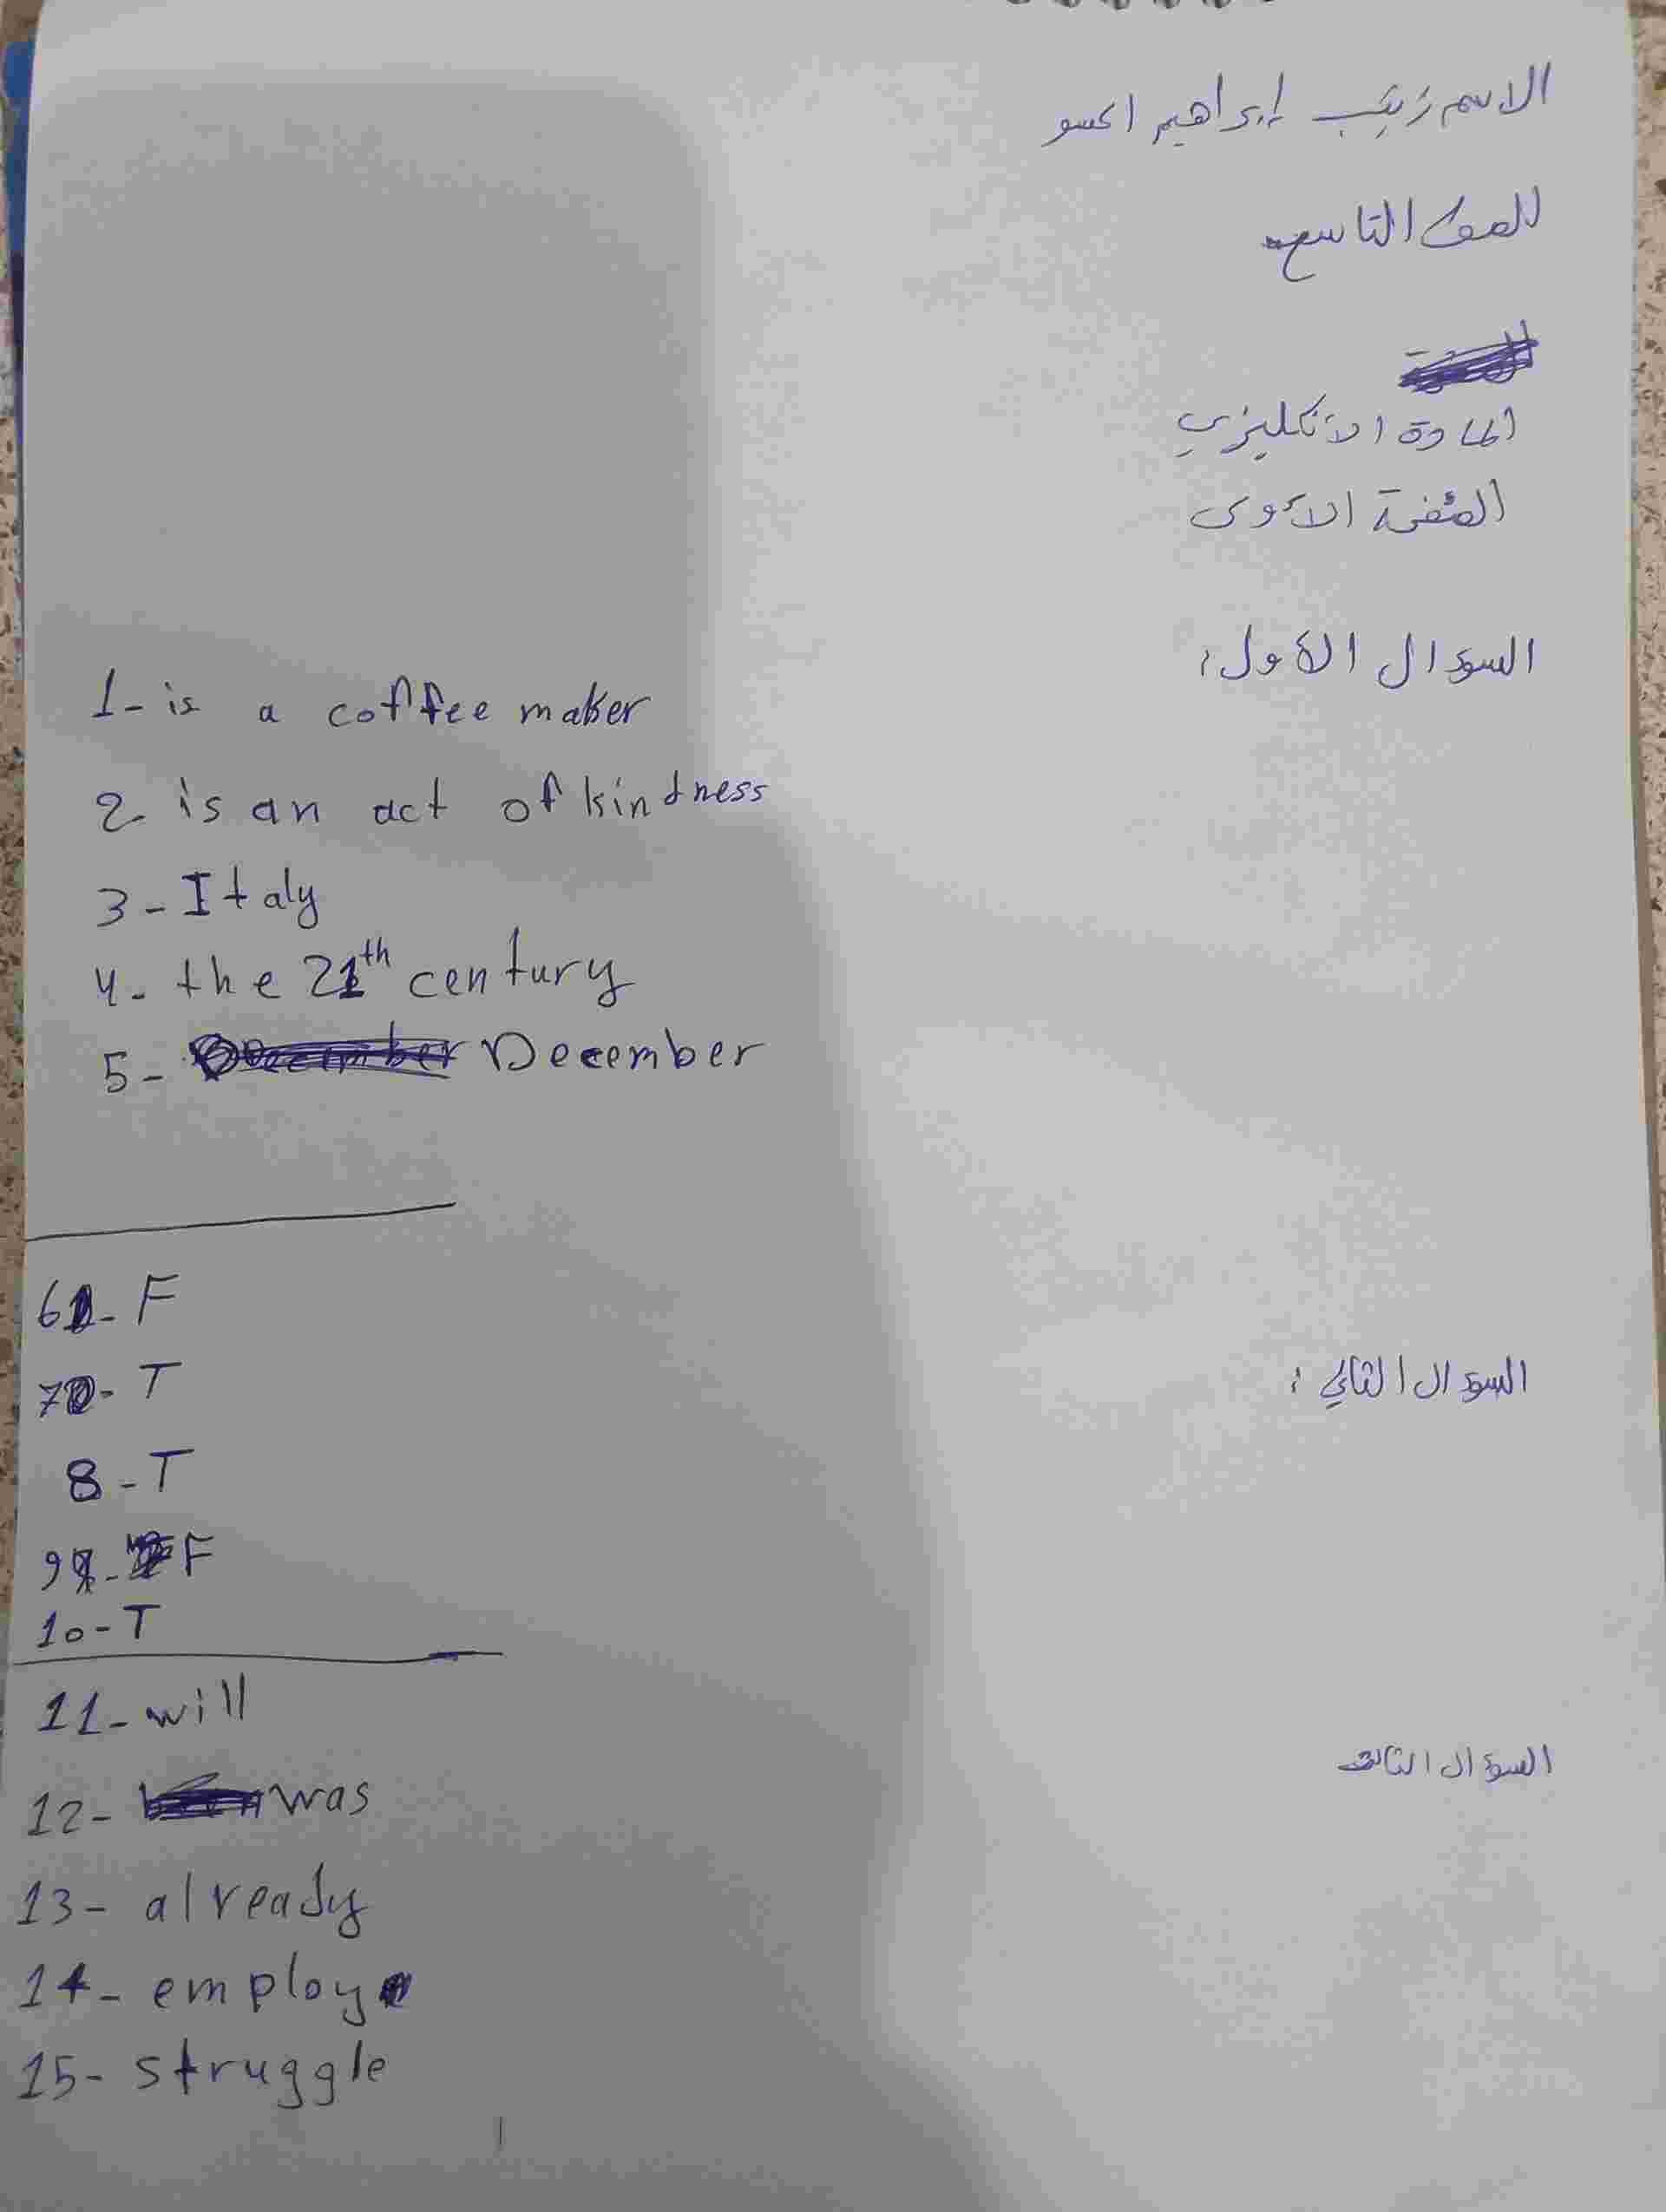 الاسم زينب إبراهيم
الصف التاسع
المادة الانكليزي
الصفحة الأولى
السؤال الأول:
1- is a coffee maker
2- is an act of kindness
3- Italy
4- the 21th century
5- December
السؤال الثاني:
6- F
7- T
8- T
9- F
10- T
السؤال الثالث
11- will
12- was
13- already
14- employ
15- struggle